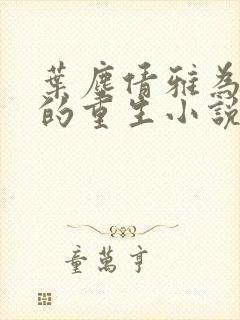 葉塵倩雅為
的重生小說
童萬亨